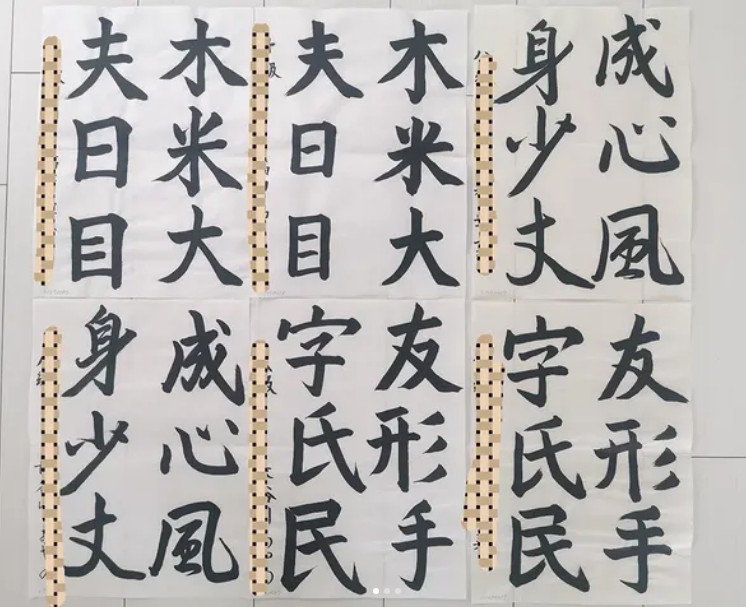 木米大
夫日目
木米大
夫日目
成心風
身少丈
成心風
身少丈
友形手
字氏民
友形手
字氏民